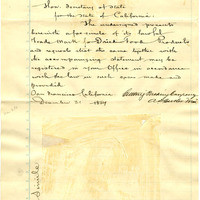 Hon. Secretary of State
for the State of California.
The undersigned presents
herewith a fac-simile of its lawful
Trade Mark for Dried Food Products
and requests that the same together with
the accompanying statement may be
registered in your Office in accordance
with the law in such cases made and
provided.
San Francisco California
December 21 1889
Company